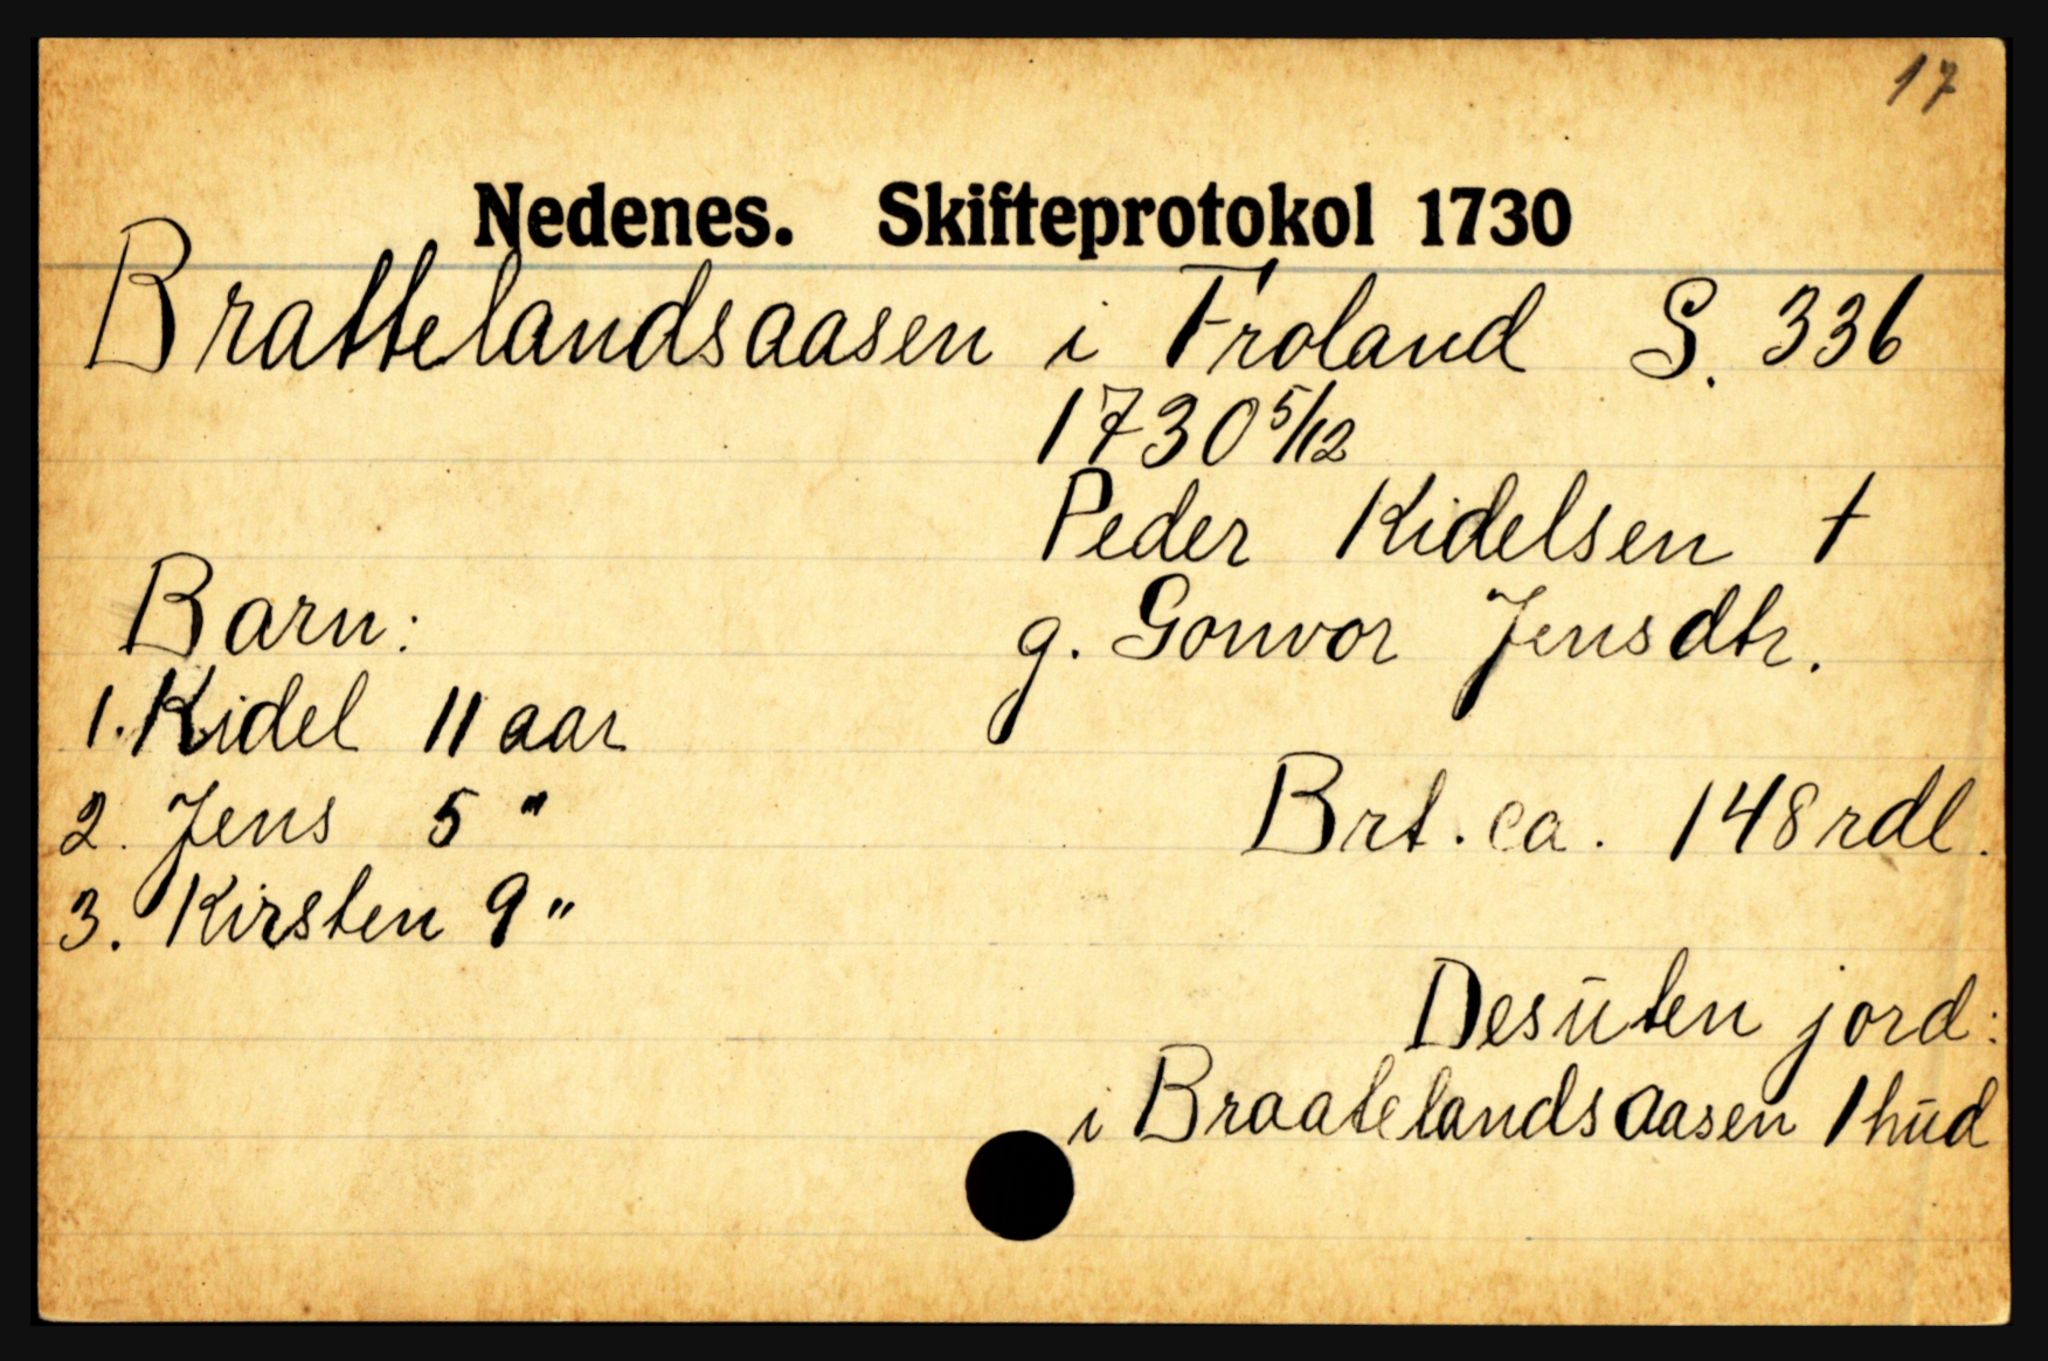 17
Nedenes. Skifteprotokol 1730
Brattelandsaasen i Froland S. 336
1730 5/12
Peder Kidelsen †
g. Gonvor Jensdtr.
Barn:
1. Kidel 11 aar
2. Jens 5 "
3. Kirsten 9 "
Brt. ca. 148 rdl.
Desūten jord:
i Braatelandsaasen 1 hūd